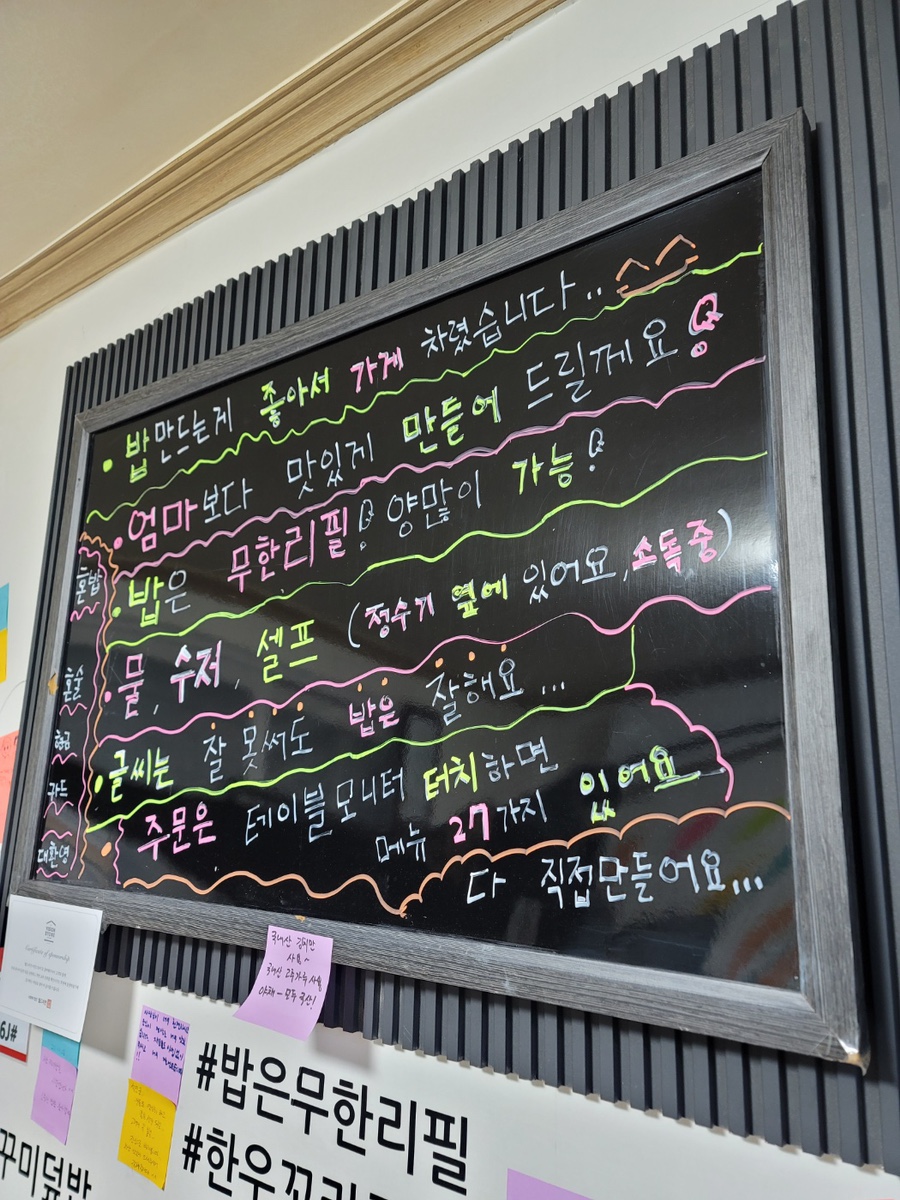 • 밥만드는게 좋아서 가게 차렸습니다.. ^^
• 엄마보다 맛있게 만들어 드릴께요!
• 밥은 무한리필! 양많이 가능!
• 물, 수저, 셀프 (정수기 옆에 있어요, 소독중)
• 글씨는 잘 못써도 밥은 잘해요...
• 주문은 테이블모니터 터치하면
메뉴 27가지 있어요
다 직접만들어요...
혼밥
혼술
현금
카드
대환영
Certificate of sponsorship
국내산 김치만
사용~
국내산 고추가루 사용
야채 - 모두 국산!
#밥은무한리필
#한우꼬리
꾸미덮밥